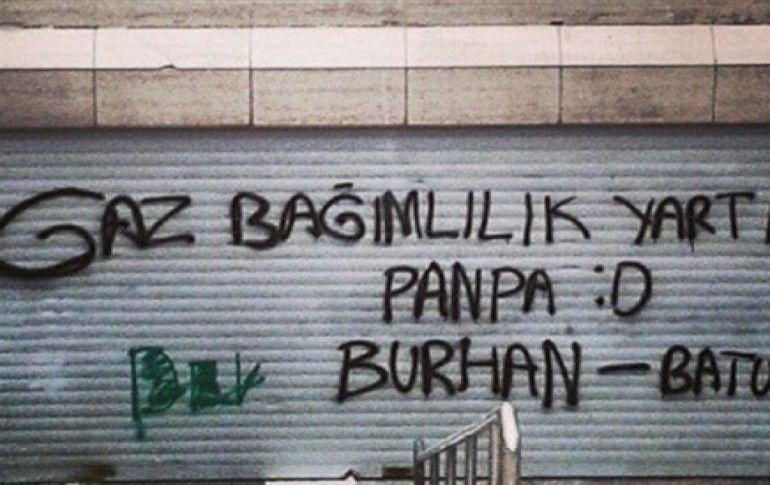 GAZ BAĞIMLILIK YARTI
PANPA :D
BURHAN - BATU